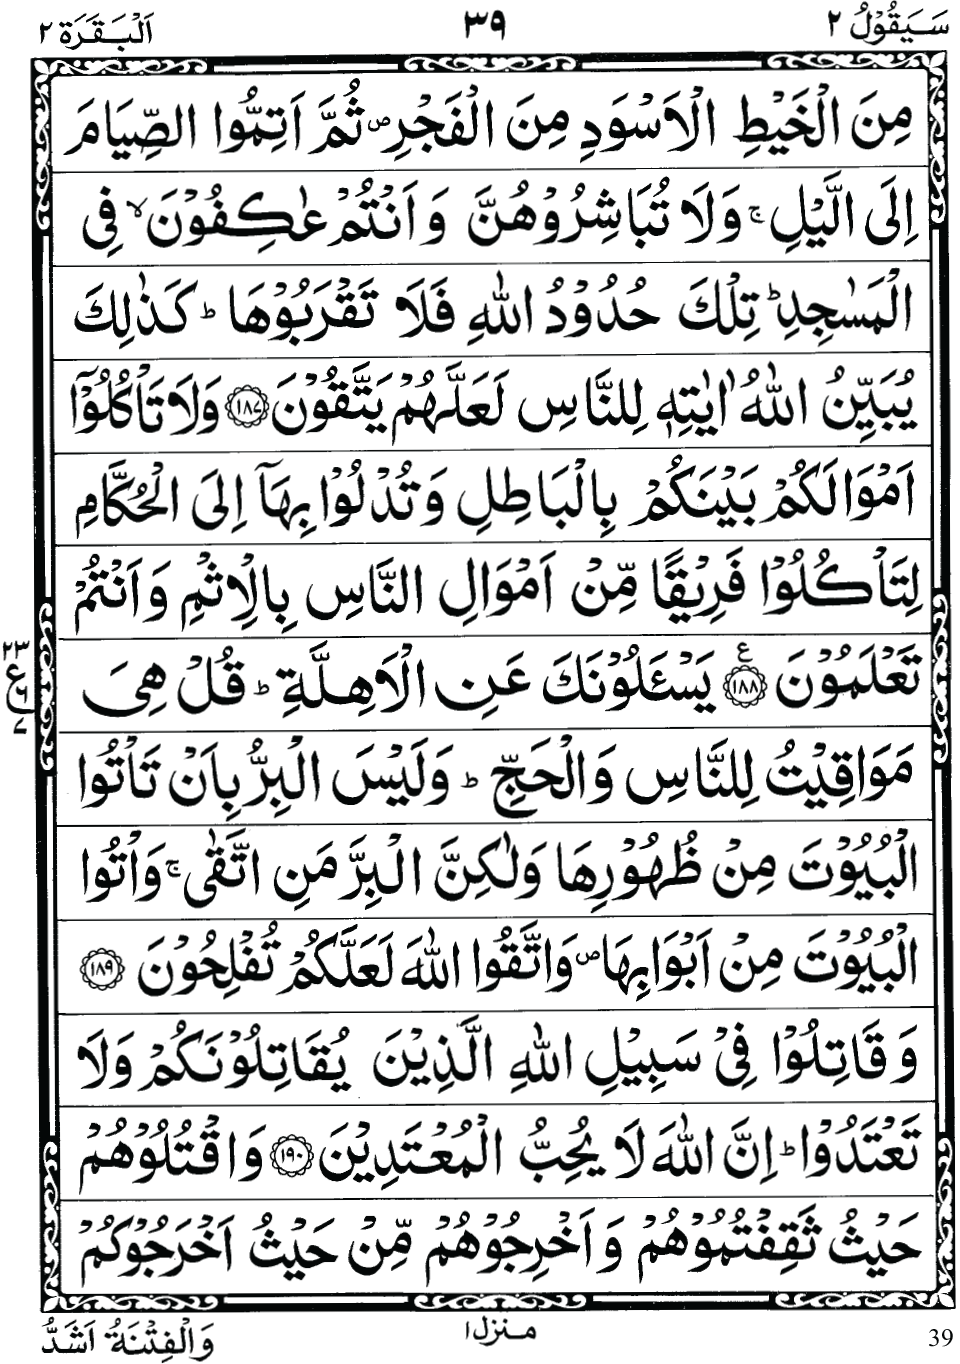 سَيَقُوْلُ ٢ ٣٩ اَلْبَقَرَة ٢
مِنَ الْخَيْطِ الْاَسْوَدِ مِنَ الْفَجْرِ ۪ ثُمَّ اَتِمُّوا الصِّيَامَ
اِلَى الَّيْلِ ۚ وَلَا تُبَاشِرُوْهُنَّ وَاَنْتُمْ عٰكِفُوْنَ ۙ فِى
الْمَسٰجِدِ ؕ تِلْكَ حُدُوْدُ اللّٰهِ فَلَا تَقْرَبُوْهَا ؕ كَذٰلِكَ
يُبَيِّنُ اللّٰهُ اٰيٰتِهٖ لِلنَّاسِ لَعَلَّهُمْ يَتَّقُوْنَ ۝١٨٧ وَلَا تَاْكُلُوْۤا
اَمْوَالَكُمْ بَيْنَكُمْ بِالْبَاطِلِ وَتُدْلُوْا بِهَاۤ اِلَى الْحُكَّامِ
لِتَاْكُلُوْا فَرِيْقًا مِّنْ اَمْوَالِ النَّاسِ بِالْاِثْمِ وَاَنْتُمْ
تَعْلَمُوْنَ ۝١٨٨ ع يَسْـَٔلُوْنَكَ عَنِ الْاَهِلَّةِ ؕ قُلْ هِىَ
٢٣ ع ٦ ٧
مَوَاقِيْتُ لِلنَّاسِ وَالْحَجِّ ؕ وَلَيْسَ الْبِرُّ بِاَنْ تَاْتُوا
الْبُيُوْتَ مِنْ ظُهُوْرِهَا وَلٰكِنَّ الْبِرَّ مَنِ اتَّقٰى ۚ وَاْتُوا
الْبُيُوْتَ مِنْ اَبْوَابِهَا ۪ وَاتَّقُوا اللّٰهَ لَعَلَّكُمْ تُفْلِحُوْنَ ۝١٨٩
وَقَاتِلُوْا فِىْ سَبِيْلِ اللّٰهِ الَّذِيْنَ يُقَاتِلُوْنَكُمْ وَلَا
تَعْتَدُوْا ؕ اِنَّ اللّٰهَ لَا يُحِبُّ الْمُعْتَدِيْنَ ۝١٩٠ وَاقْتُلُوْهُمْ
حَيْثُ ثَقِفْتُمُوْهُمْ وَاَخْرِجُوْهُمْ مِّنْ حَيْثُ اَخْرَجُوْكُمْ
وَالْفِتْنَةُ اَشَدُّ منزل ١ 39